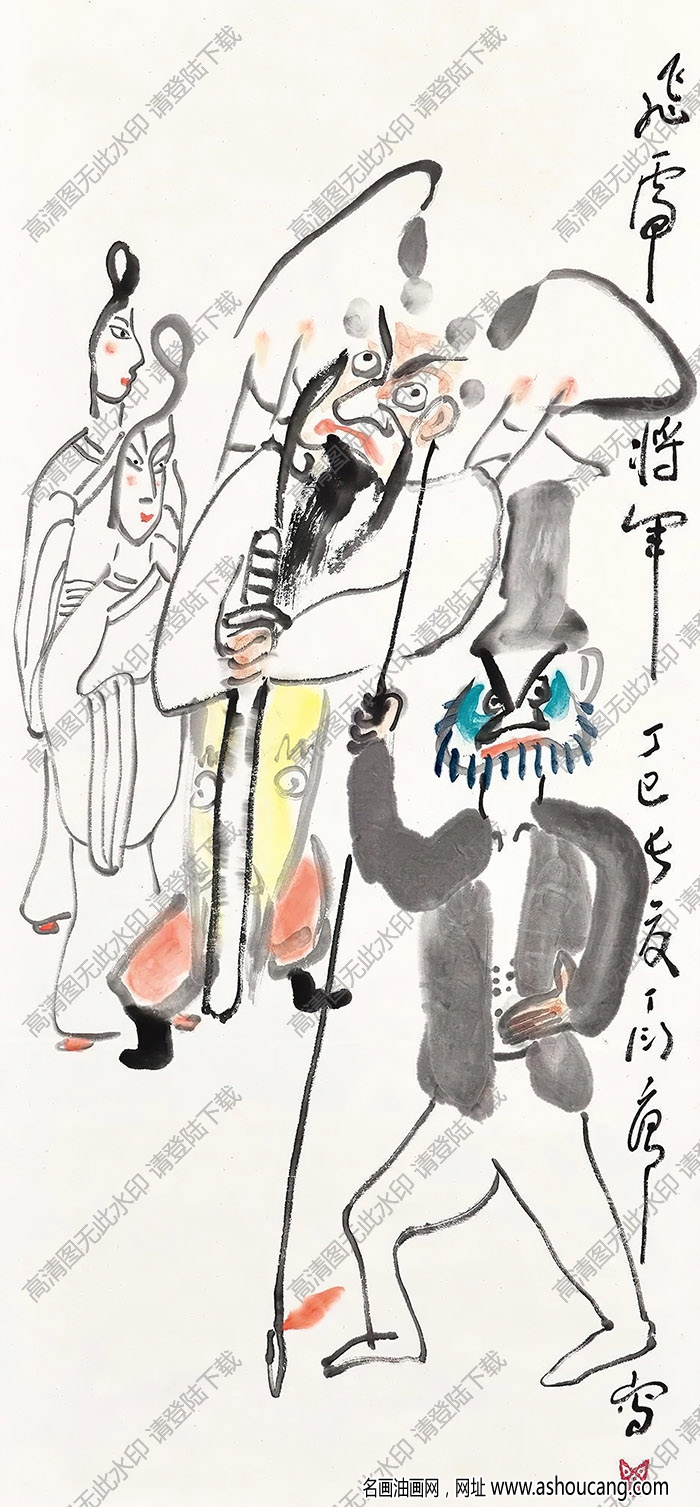 飞虎
将军
丁巳长夏丁衍庸
写
高清图无此水印 请登陆下载
名画油画网，网址 www.ashoucang.com